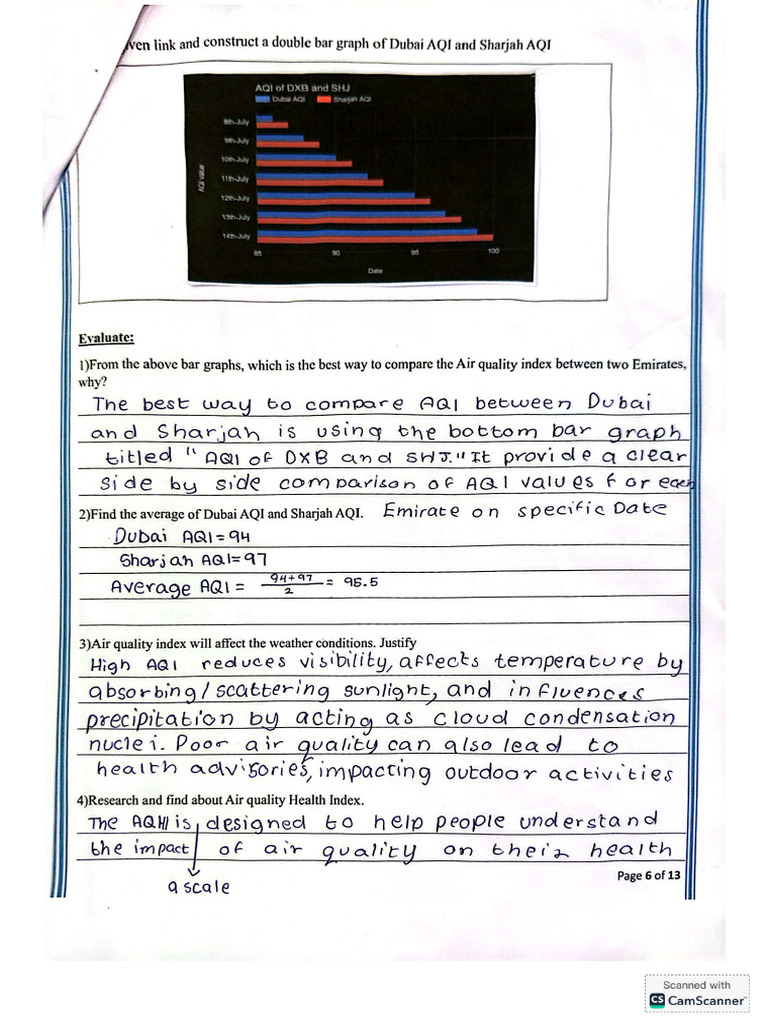 ven link and construct a double bar graph of Dubai AQI and Sharjah AQI
AQI of DXB and SHJ
Dubai AQI Sharjah AQI
8th-July
9th-July
10th-July
11th-July
12th-July
13th-July
14th-July
AQI value
85 90 95 100
Date
Evaluate:
1)From the above bar graphs, which is the best way to compare the Air quality index between two Emirates,
why?
The best way to compare AQI between Dubai
and Sharjah is using the bottom bar graph
titled "AQI of DXB and SHJ." It provide a clear
side by side comparison of AQI values for each
2)Find the average of Dubai AQI and Sharjah AQI. Emirate on specific Date
Dubai AQI=94
Sharjah AQI=97
Average AQI = 94+97/2 = 95.5
3)Air quality index will affect the weather conditions. Justify
High AQI reduces visibility, affects temperature by
absorbing/scattering sunlight, and influences
precipitation by acting as cloud condensation
nuclei. Poor air quality can also lead to
health advisories, impacting outdoor activities
4)Research and find about Air quality Health Index.
The AQHI is designed to help people understand
the impact of air quality on their health
a scale
Page 6 of 13
Scanned with
CS CamScanner